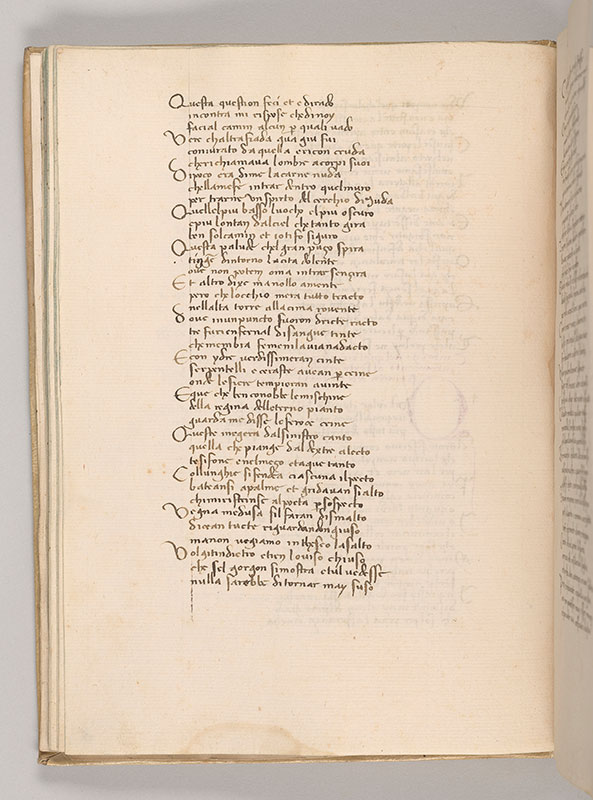 Questa question feci et e dirado
incontra mi rispose che di noy
facia l camin alcun p quali vado
Vero e chaltra fiada qua giu fui
coniurato da quella ericon cruda
che richiamava lombre a corpi suoi
Di poco era di me la carne nuda
chella mese intrar dentro quel muro
per trarne un spirto del cerchio di Juda
Quelle l piu basso luocho el piu oscuro
e piu lontan dal ciel che tanto gira
ben so l camin et to ti fo siguro
Questa palude chel gran puço spira
tinge dintorno la cita dolente
ove non potem oma intrar sencira
Et altro dixe ma nollo a mente
pero che locchio mera tutto tracto
nell alta torre alla cima rovente
Dove in un puncto furon dricte racto
tre furie infernal di sangue tinte
che membra femenil avian ad acto
E con ydre verdissime eran cinte
serpentelli e ceraste avean p crine
onde le fiere tempie eran avinte
E que che ben conobbe le mischine
della regina delleterno pianto
guarda me disse le feroce erine
Questa megera dal sinistro canto
quella che piange dal dextro alecto
tesifone e nel meço e taque tanto
Coll unghie si fendea ciascuna il pecto
bateansi a palme et gridavan si alto
chi mi ristrinse al poeta p sospecto
Vegna medusa si l faran di smalto
dicean tucte riguardando in giuso
ma non vegiamo in theseo lasalto
Volgiti indietro e tien lo viso chiuso
che se l gorgon si mostra e tu l vedesse
nulla sarebbe di tornar may suso